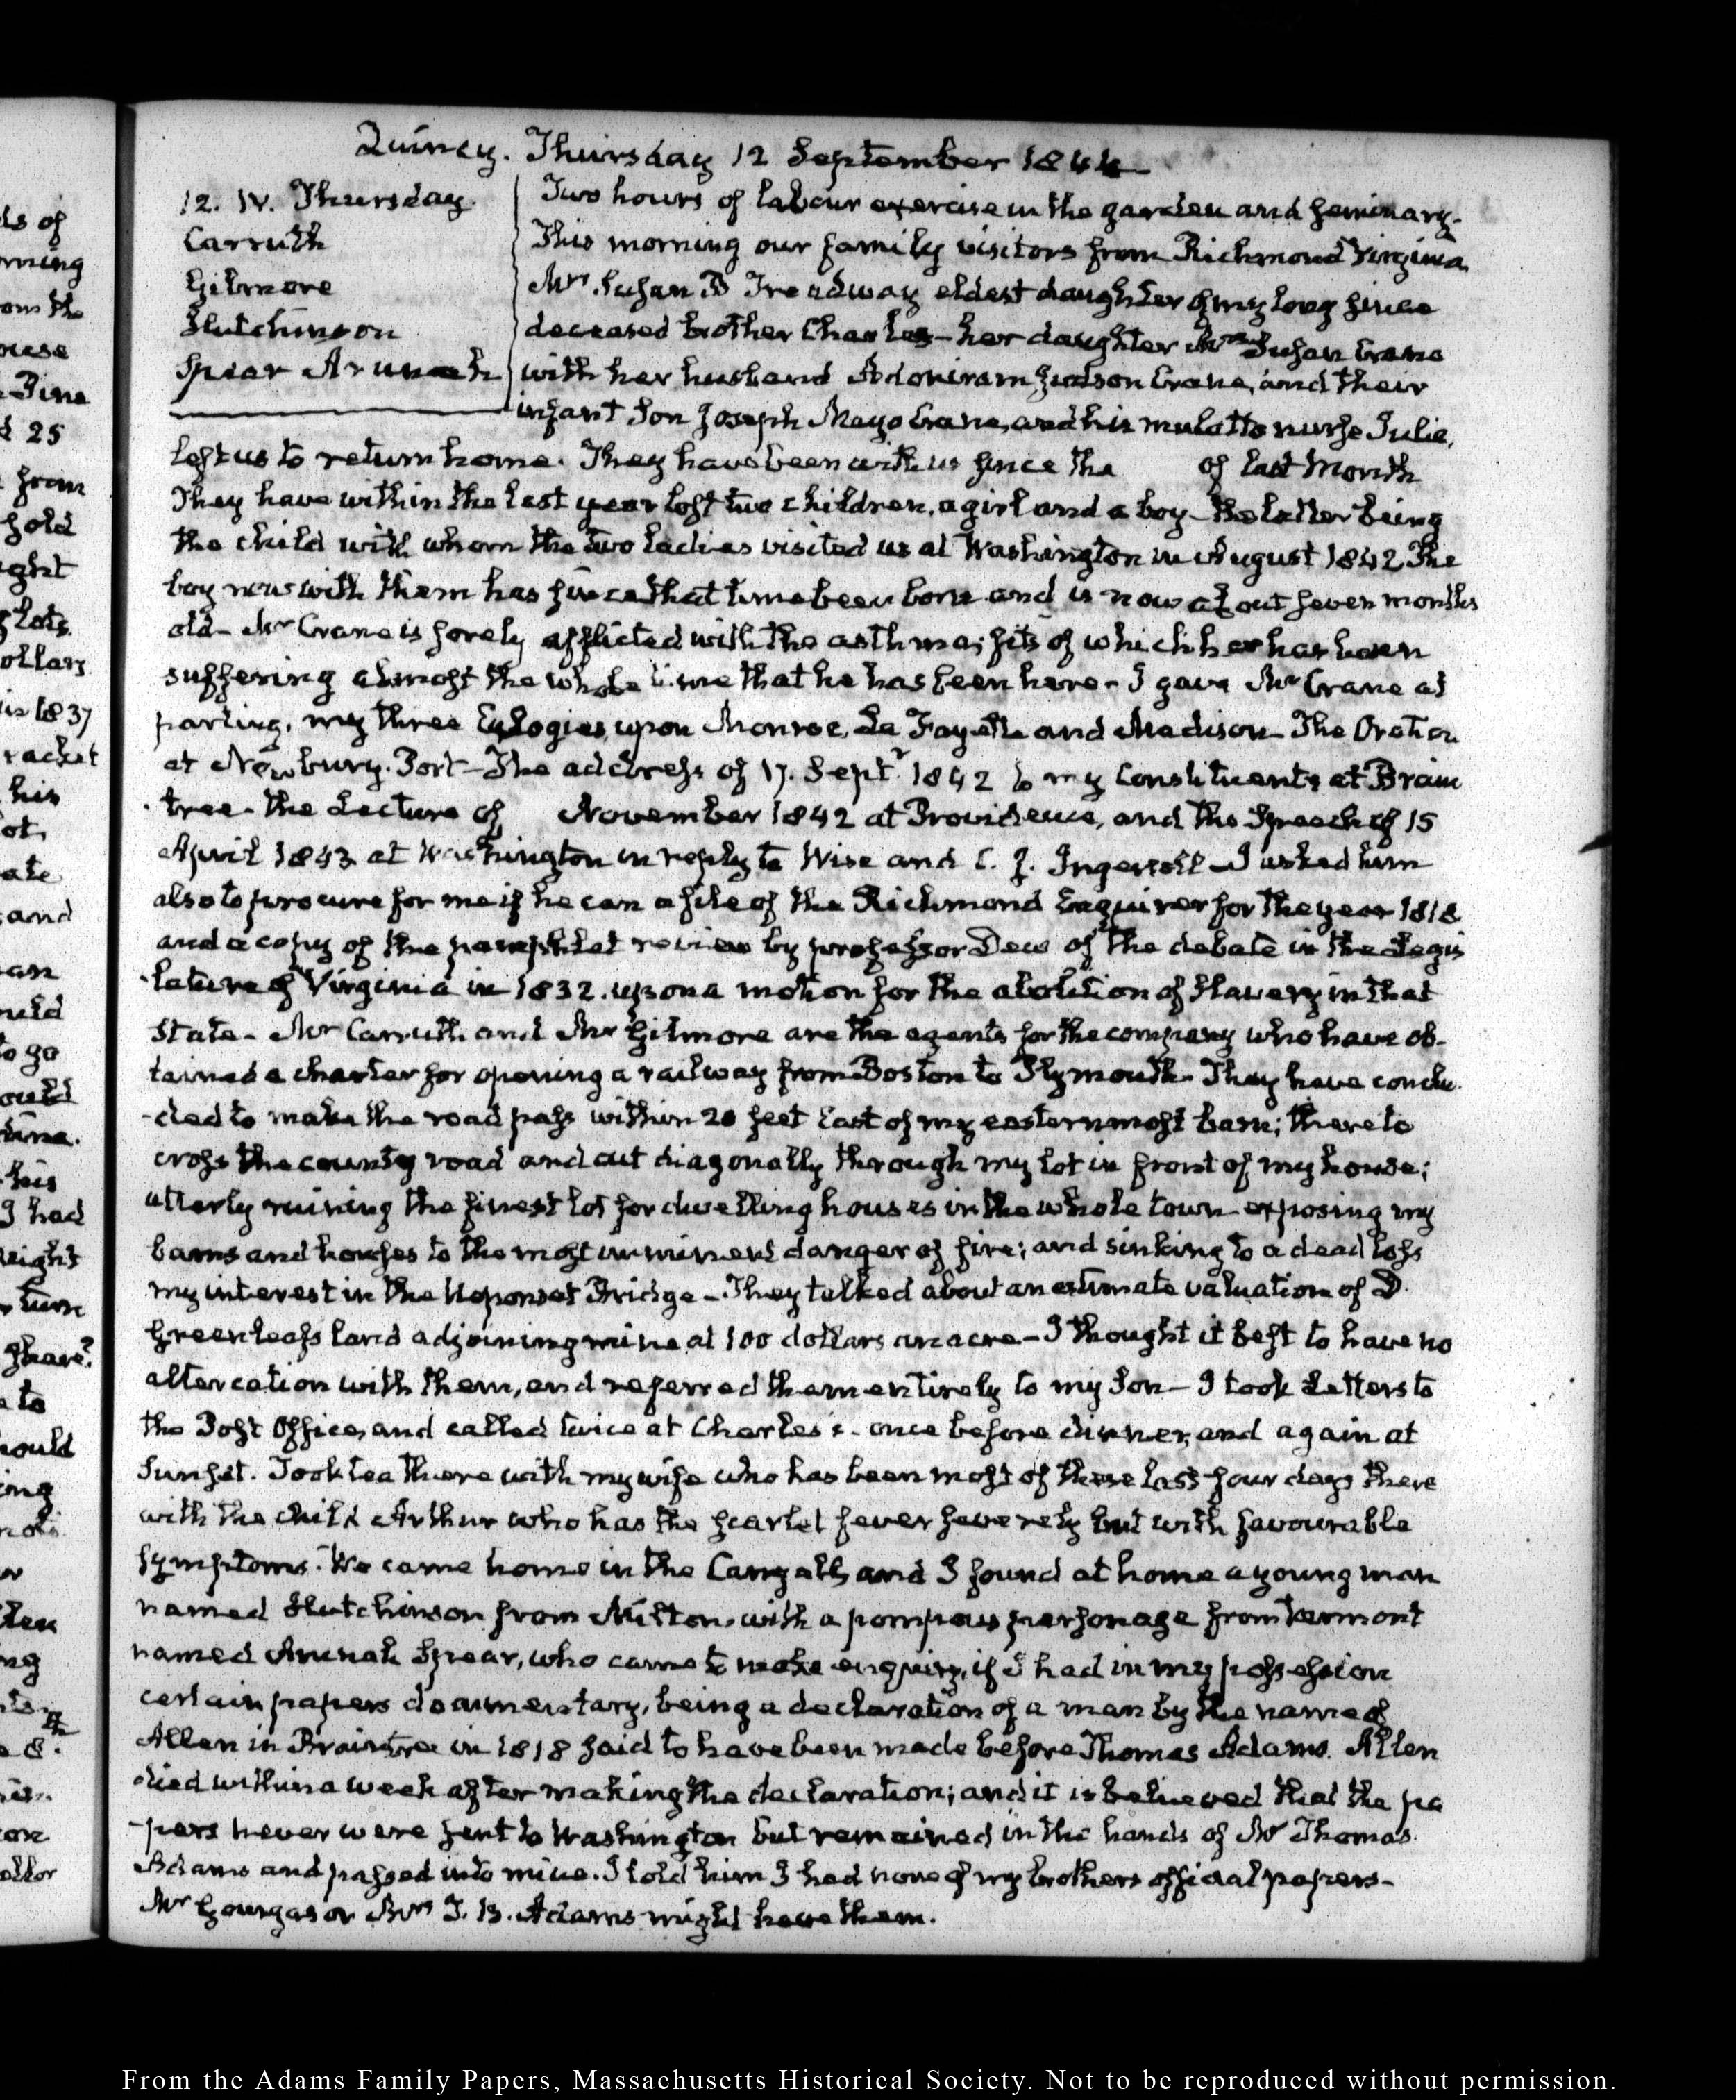 Quincy. Thursday 12 September 1844
12. IV. Thursday.
Carruth
Gilmore
Hutchinson
Spear Arunah
Two hours of labour exercise in the garden and seminary.
This morning our family visitors from Richmond Virginia
Mrs. Susan B Treadway eldest daughter of my long since
deceased brother Charles – her daughter Mrs Susan Crane
with her husband Adoniram Judson Crane, and their
infant Son Joseph Mayo Crane, and his mulatto nurse Julia,
left us to return home. They have been with us since the of last Month
They have within the last year lost two children, a girl and a boy – the latter being
the child with whom the two ladies visited us at Washington in August 1842 The
boy now with them has since that time been born and is now about seven months
old – Mr Crane is sorely afflicted with the asthma; fits of which he has been
suffering almost the whole time that he has been here – I gave Mr Crane at
parting, my three Eulogies, upon Monroe, La Fayette and Madison – The Oration
at Newbury-Port – The address of 17. Septr 1842 to my Constituents at Brain
-tree – the Lecture of November 1842 at Providence, and the Speech of 15
April 1843 at Washington in reply to Wise and C. J. Ingersoll – I asked him
also to procure for me if he can a file of the Richmond Enquirer for the year 1818
and a copy of the pamphlet review by professor Dew of the debate in the Legis
-lature of Virginia in 1832. upon a motion for the abolition of Slavery in that
State – Mr Carruth and Mr Gilmore are the agents for the company who have ob-
tained a charter for opening a railway from Boston to Plymouth – They have conclu
-ded to make the road pass within 20 feet East of my easternmost barn; there to
cross the county road and cut diagonally through my lot in front of my house;
utterly ruining the finest lot for dwelling houses in the whole town – exposing my
barns and houses to the most imminent danger of fire; and sinking to a dead loss
my interest in the Neponset Bridge – They talked about an estimate valuation of D.
Greenleafs land adjoining mine at 100 dollars an acre – I thought it best to have no
altercation with them, and referred them entirely to my Son – I took Letters to
the Post Office, and called twice at Charles's – once before dinner, and again at
Sunset. Took tea there with my wife who has been most of these last four days there
with the child Arthur who has the scarlet fever severely but with favourable
symptoms. We came home in the Carryall, and I found at home a young man
named Hutchinson from Milton, with a pompous personage from Vermont
named Arunah Spear, who came to make enquiry, if I had in my possession
certain papers documentary, being a declaration of a man by the name of
Allen in Braintree in 1818 said to have been made before Thomas Adams. Allen
died within a week after making the declaration; and it is believed that the pa
-pers never were sent to Washington but remained in the hands of Mr Thomas
Adams and passed into mine. I told him I had none of my brothers official papers –
Mr Gourgas or Mrs T. B. Adams might have them.
From the Adams Family Papers, Massachusetts Historical Society. Not to be reproduced without permission.